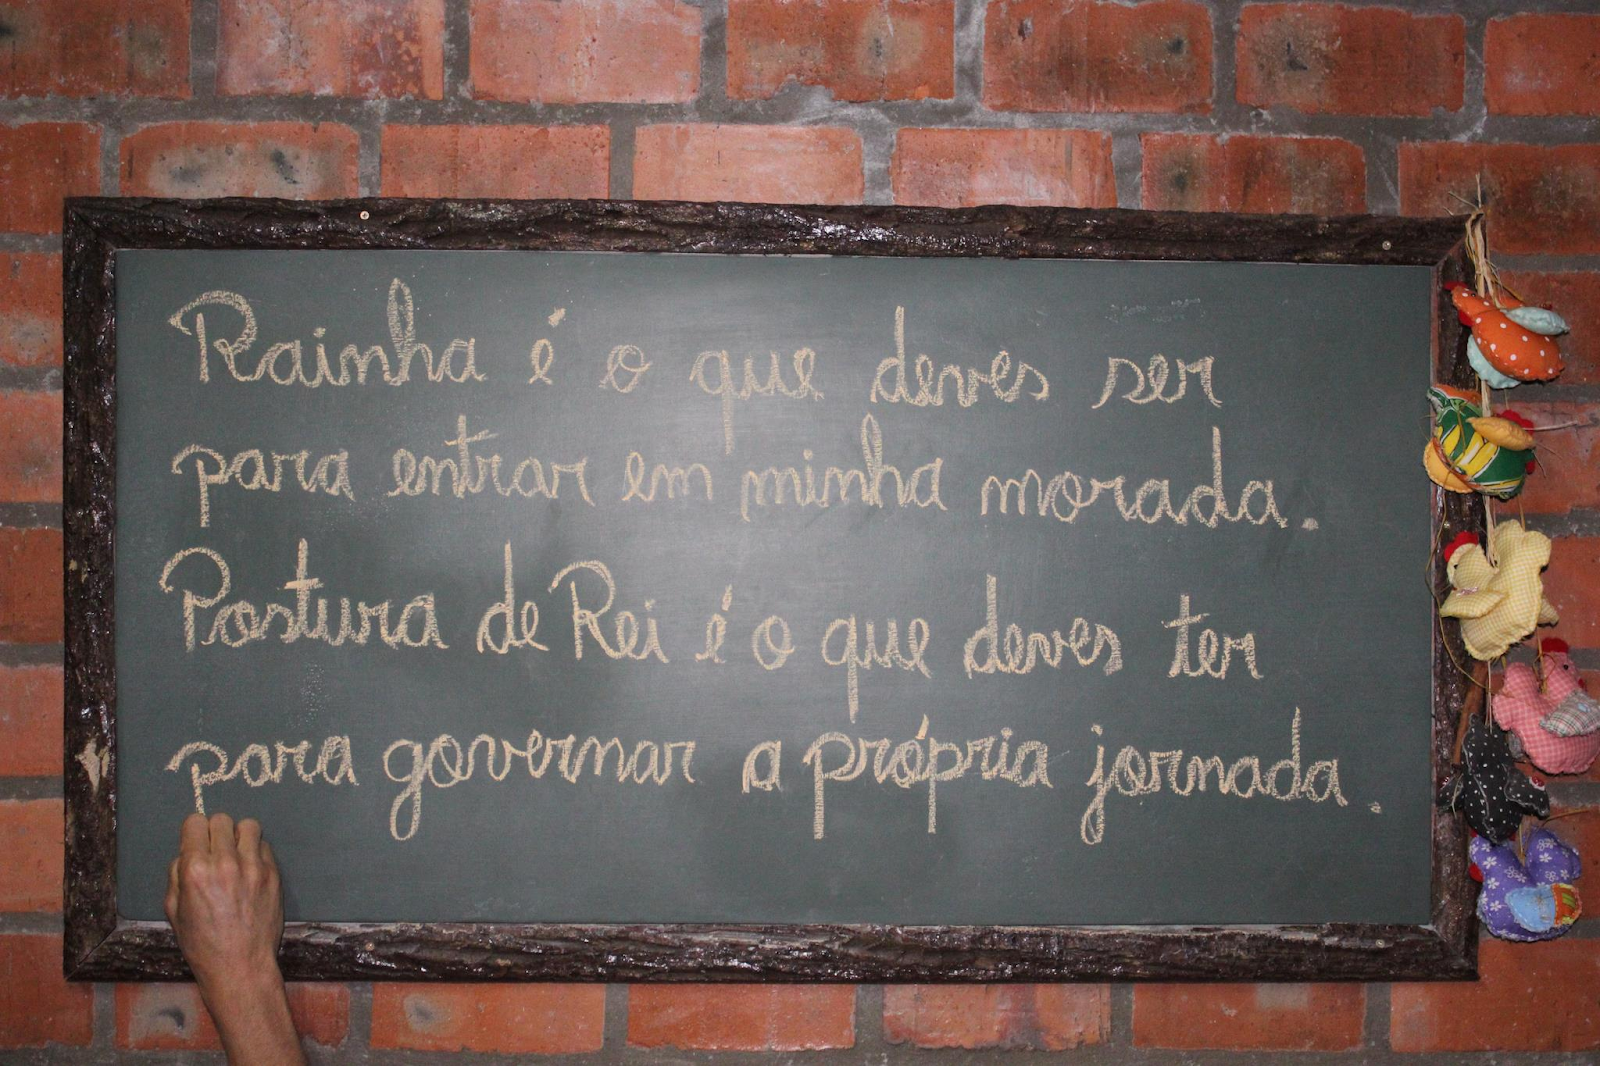 Rainha é o que deves ser
para entrar em minha morada.
Postura de Rei é o que deves ter
para governar a própria jornada.